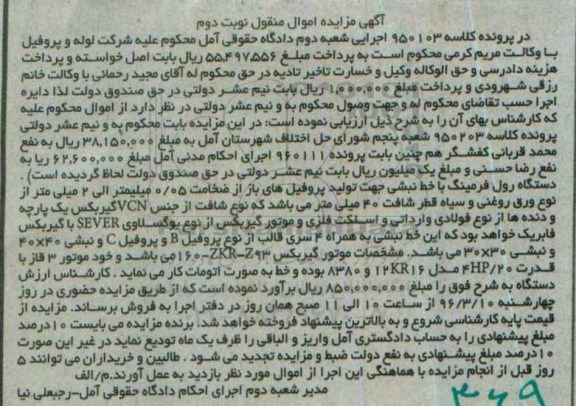 آگهی مزایده اموال منقول نوبت دوم
در پرونده کلاسه ۹۵۰۱۰۳ اجرایی شعبه دوم دادگاه حقوقی آمل محکوم علیه شرکت لوله و پروفیل
با وکالت مریم کرمی محکوم است به پرداخت مبلغ ۵۵,۴۹۷,۵۵۶ ریال بابت اصل خواسته و پرداخت
هزینه دادرسی و حق الوکاله وکیل و خسارت تاخیر تادیه در حق محکوم له آقای مجید رحمانی با وکالت خانم
رزقی شهرودی و پرداخت مبلغ ۱,۰۰۰,۰۰۰ ریال بابت نیم عشر دولتی در حق صندوق دولت لذا دایره
اجرا حسب تقاضای محکوم له و جهت وصول محکوم به و نیم عشر دولتی در نظر دارد از اموال محکوم علیه
که کارشناس بهای آن را به شرح ذیل ارزیابی نموده است: در این مزایده بابت محکوم به و نیم عشر دولتی
پرونده کلاسه ۹۵۰۲۰۳ شعبه پنجم شورای حل اختلاف شهرستان آمل به مبلغ ۳۸,۱۵۰,۰۰۰ ریال به نفع
محمد قربانی کفشگر هم چنین بابت پرونده ۹۶۰۱۱۱ اجرای احکام مدنی آمل مبلغ ۶۲,۶۰۰,۰۰۰ ریا به
نفع رضا حسنی و مبلغ یک میلیون ریال بابت نیم عشر دولتی در حق صندوق دولت لحاظ گردیده است)
دستگاه رول فرمینگ با خط نبشی جهت تولید پروفیل های باز از ضخامت ۰/۰۵ میلیمتر الی ۲ میلی متر از
نوع ورق روغنی و سیاه قطر شافت ۴۰ میلی متر می باشد که نوع شافت از جنس VCN گیربکس یک پارچه
و دنده ها از نوع فولادی وارداتی و اسلکت فلزی و موتور گیربکس از نوع یوگسلاوی SEVER با گیربکس
فابریک خواهد بود که این خط نبشی به همراه ۴ سری قالب از نوع پروفیل B و پروفیل C و نبشی ۴۰×۴۰
و نبشی ۳۰×۳۰ می باشد. مشخصات موتور گیربکس ۱۶۰-ZKR-Z۹۳ می باشد و خود موتور ۳ فاز با
قدرت ۴HP/۲۰ مدل ۱۲KR۱۶ و ۸۳۸۰ بوده و خط به صورت اتومات کار می نماید. کارشناس ارزش
دستگاه به شرح فوق را مبلغ ۸۵۰,۰۰۰,۰۰۰ ریال برآورد نموده است که از طریق مزایده حضوری در روز
چهارشنبه ۹۶/۳/۱۰ از ساعت ۱۰ الی ۱۱ صبح همان روز در دفتر اجرا به فروش برساند. مزایده از
قیمت پایه کارشناسی شروع و به بالاترین پیشنهاد فروخته خواهد شد. برنده مزایده می بایست ۱۰درصد
مبلغ پیشنهادی را به حساب دادگستری آمل واریز و الباقی را ظرف یک ماه تودیع نماید در غیر این صورت
۱۰درصد مبلغ پیشنهادی به نفع دولت ضبط و مزایده تجدید می شود. طالبین و خریداران می توانند ۵
روز قبل از انجام مزایده با هماهنگی این اجرا از اموال مورد نظر بازدید به عمل آورند.م/الف
مدیر شعبه دوم اجرای احکام دادگاه حقوقی آمل-رجبعلی نیا